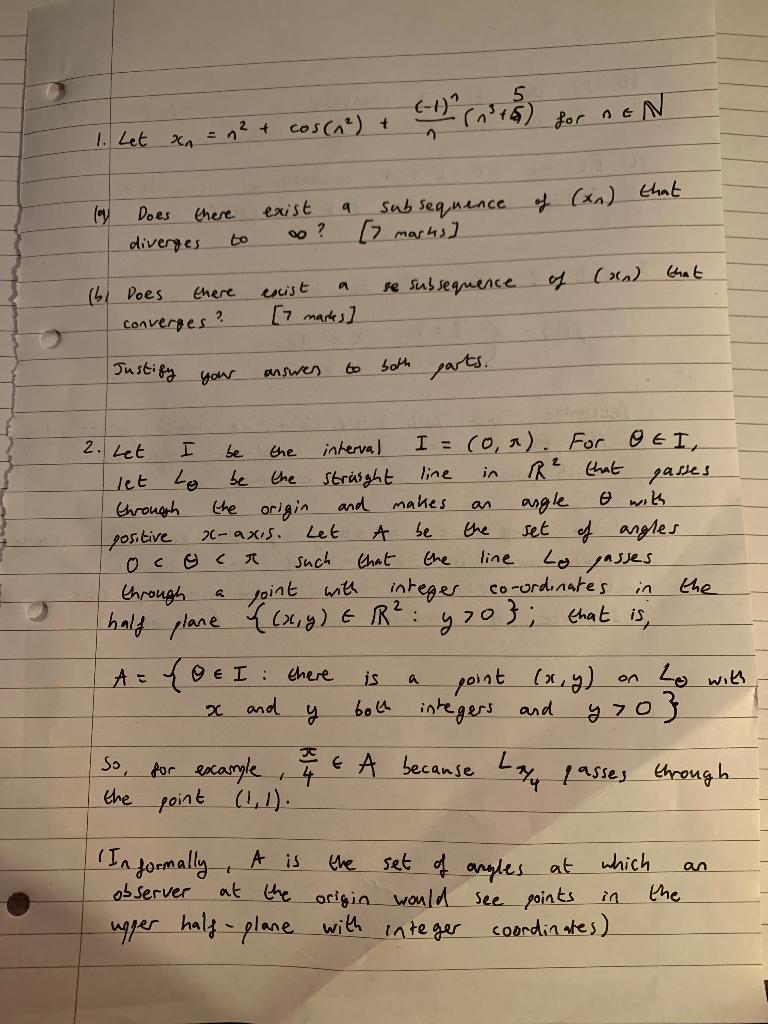 1. Let xₙ = n² + cos(n²) + (-1)ⁿ/n (n³+5) for n ∈ ℕ
(a) Does there exist a subsequence of (xₙ) that
diverges to ∞? [7 marks]
(b) Does there exist a subsequence of (xₙ) that
converges? [7 marks]
Justify your answer to both parts.
2. Let I be the interval I = (0, π). For θ ∈ I,
let L_θ be the straight line in ℝ² that passes
through the origin and makes an angle θ with
positive x-axis. Let A be the set of angles
0 < θ < π such that the line L_θ passes
through a point with integer co-ordinates in the
half plane {(x,y) ∈ ℝ² : y > 0}; that is,
A = {θ ∈ I : there is a point (x,y) on L_θ with
x and y both integers and y > 0}
So, for example, π/4 ∈ A because L_π/4 passes through
the point (1,1).
(Informally, A is the set of angles at which an
observer at the origin would see points in the
upper half-plane with integer coordinates)